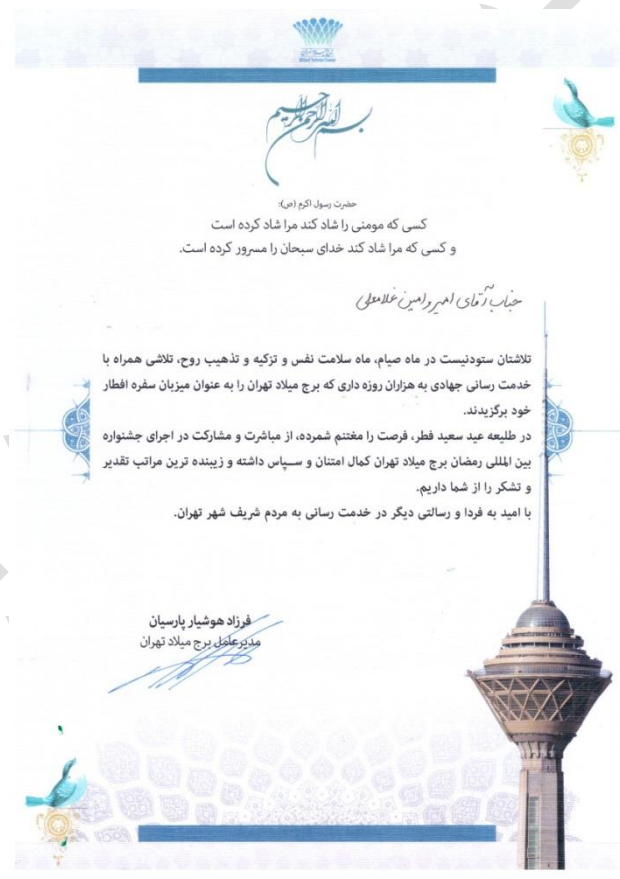 بسم الله الرحمن الرحیم
حضرت رسول اکرم (ص):
کسی که مومنی را شاد کند مرا شاد کرده است
و کسی که مرا شاد کند خدای سبحان را مسرور کرده است.
جناب آقای امیر و امین غلامعلی
تلاشتان ستودنیست در ماه صیام، ماه سلامت نفس و تزکیه و تذهیب روح، تلاشی همراه با
خدمت رسانی جهادی به هزاران روزه داری که برج میلاد تهران را به عنوان میزبان سفره افطار
خود برگزیدند.
در طلیعه عید سعید فطر، فرصت را مغتنم شمرده، از مباشرت و مشارکت در اجرای جشنواره
بین المللی رمضان برج میلاد تهران کمال امتنان و سپاس داشته و زیبنده ترین مراتب تقدیر
و تشکر را از شما داریم.
با امید به فردا و رسالتی دیگر در خدمت رسانی به مردم شریف شهر تهران.
فرزاد هوشیار پارسیان
مدیرعامل برج میلاد تهران